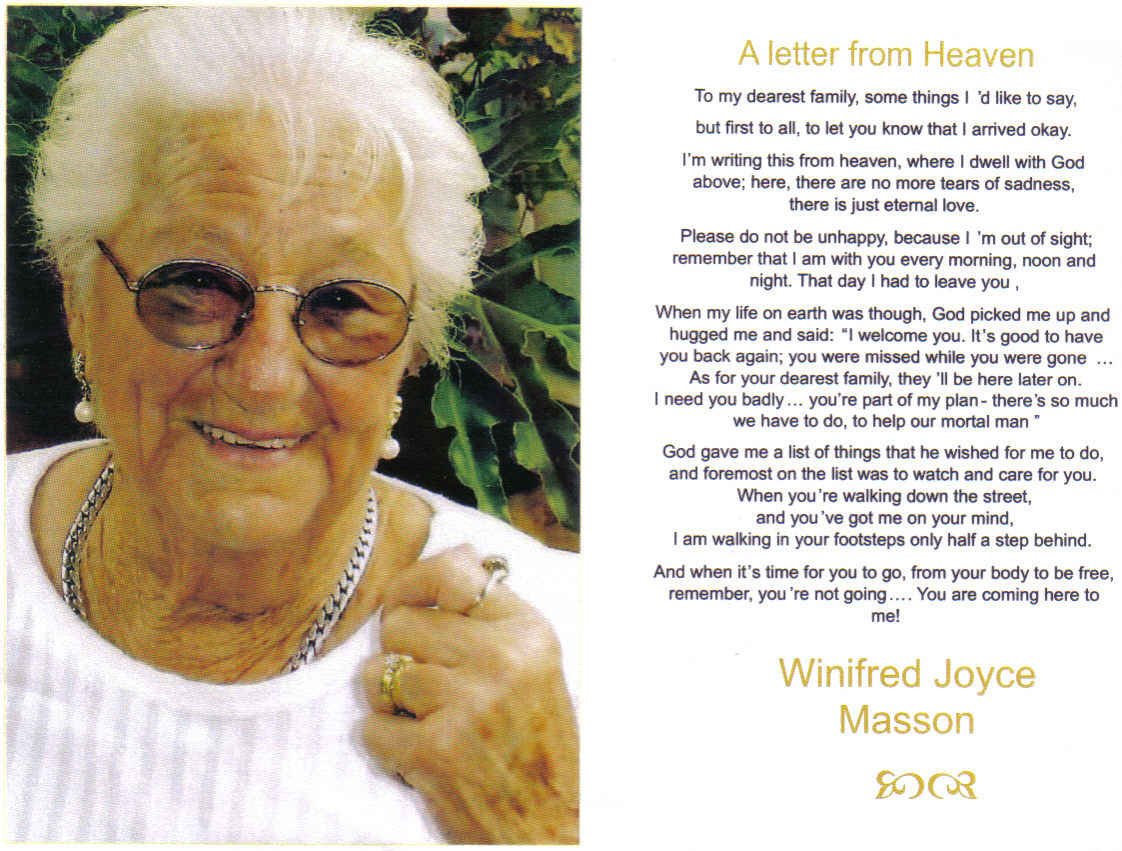 A letter from Heaven
To my dearest family, some things I 'd like to say,
but first to all, to let you know that I arrived okay.
I'm writing this from heaven, where I dwell with God
above; here, there are no more tears of sadness,
there is just eternal love.
Please do not be unhappy, because I 'm out of sight;
remember that I am with you every morning, noon and
night. That day I had to leave you ,
When my life on earth was though, God picked me up and
hugged me and said: “I welcome you. It's good to have
you back again; you were missed while you were gone ...
As for your dearest family, they 'll be here later on.
I need you badly... you're part of my plan- there's so much
we have to do, to help our mortal man ”
God gave me a list of things that he wished for me to do,
and foremost on the list was to watch and care for you.
When you're walking down the street,
and you've got me on your mind,
I am walking in your footsteps only half a step behind.
And when it's time for you to go, from your body to be free,
remember, you 're not going.... You are coming here to
me!
Winifred Joyce
Masson